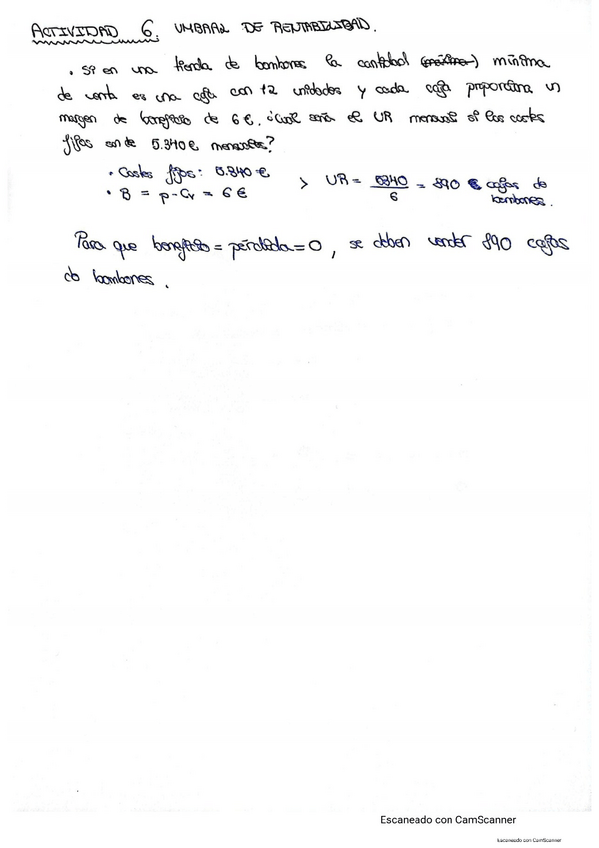 ACTIVIDAD 6. UMBRAL DE RENTABILIDAD.
• Si en una tienda de bombones la cantidad mínima
de venta es una caja con 12 unidades y cada caja proporciona un
margen de beneficio de 6 €. ¿Cuál sería el UR mensual si los costes
fijos son de 5.340 € mensuales?
• Costes fijos: 5.340 €
• B = p - Cv = 6 €
> UR = 5340 / 6 = 890 cajas de
bombones.
Para que beneficio = pérdida = 0, se deben vender 890 cajas
de bombones.
Escaneado con CamScanner
Escaneado con CamScanner